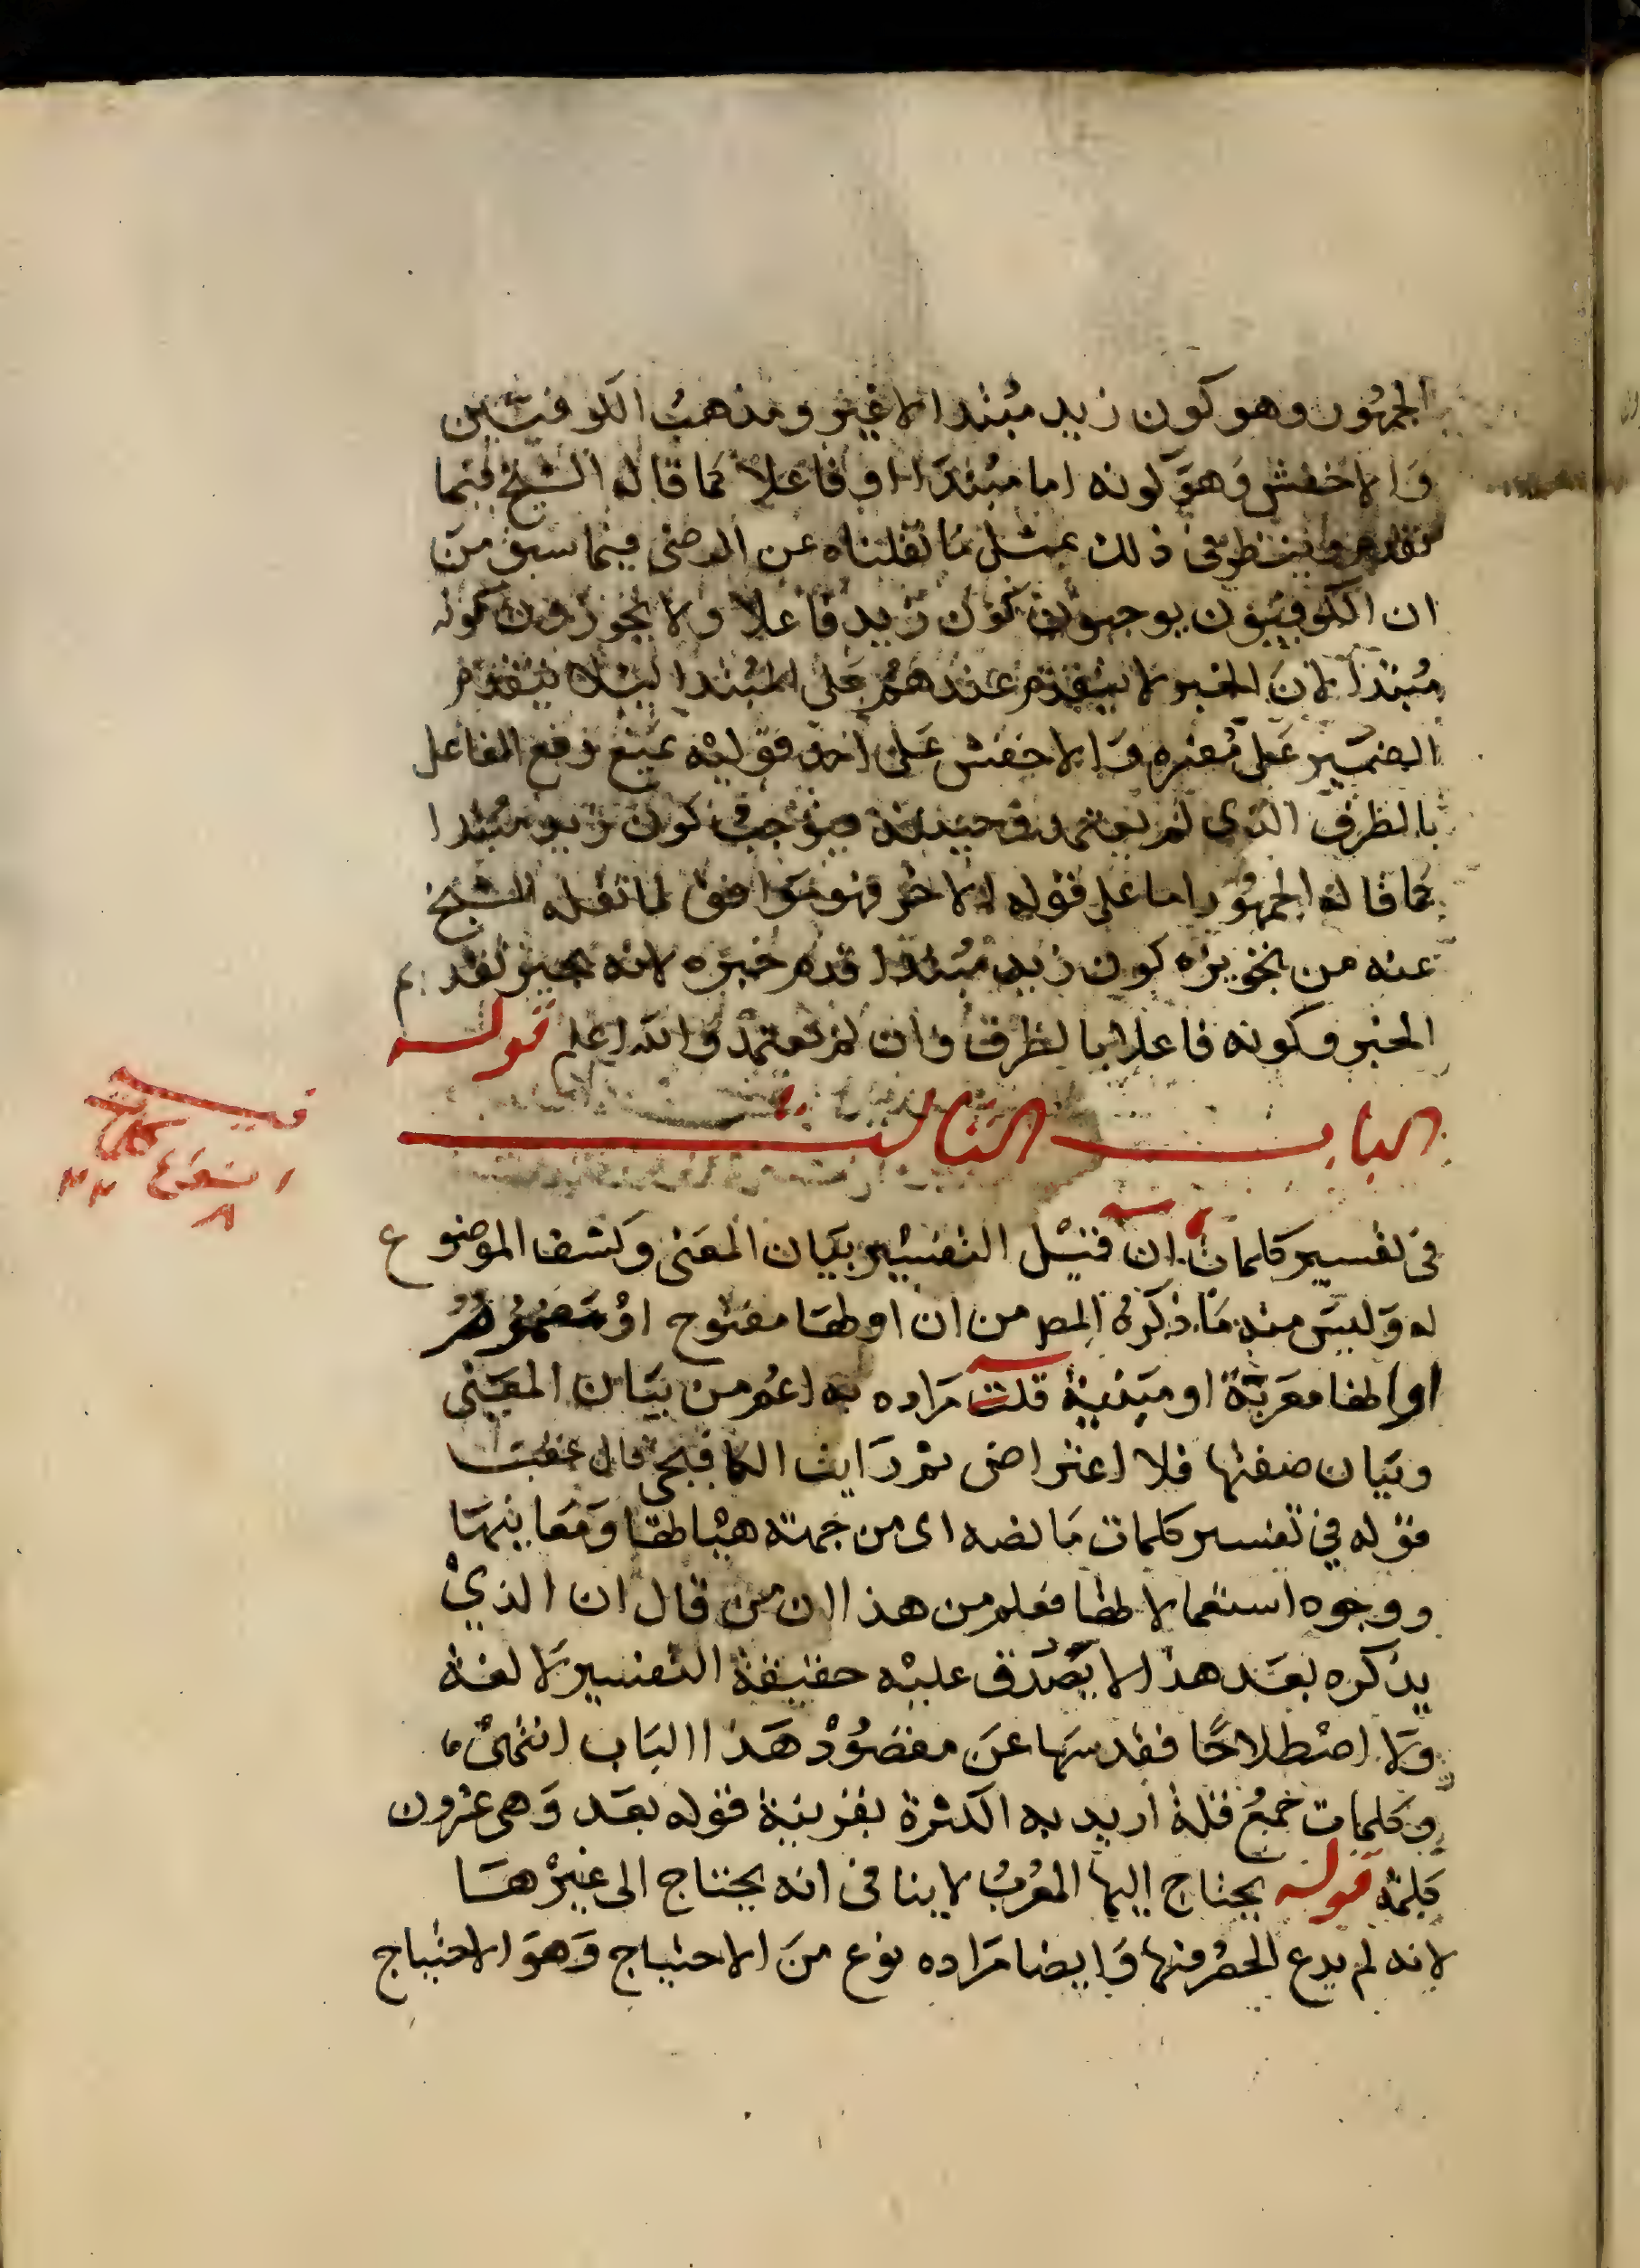 الجمهور وهو كون زيد مبتدا لا غير ومذهب الكوفيين
والاخفش وهو كونه اما مبتدا او فاعلا كما قاله الشيخ فيما
تقدم وينظر في ذلك بمثل ما نقلناه عن الرضى فيما سبق من
ان الكوفيون يوجبون كون زيد فاعلا ولا يجوزون كونه
مبتدا لان الخبر لا يتقدم عندهم على المبتدا ليلا يتقدم
الضمير على مفسره والاخفش على احد قوليه يمنع رفع الفاعل
بالظرف الذي لم يعتمد وحينئذ فيوجب كون زيد مبتدا
كما قاله الجمهور اما على قوله الاخر فهو موافق لما نقله الشيخ
عنه من تجويزه كون زيد مبتدا قدم خبره لانه يجيز تقديم
الخبر وكونه فاعلا بالظرف وان لم تعتمد والله اعلم قوله
الباب الثالث
في تفسير كلمات ان قيل التفسير بيان المعنى وكشف الموضوع
له وليس منه ما ذكره المص من ان اولها مفتوح او مضموم
او انها معربة او مبنية قلت مراده به اعم من بيان المعنى
وبيان صفتها فلا اعتراض ثم رايت الكافيجي قال عقب
قوله في تفسير كلمات ما نصه اى من جهة هياتها ومعانيها
ووجوه استعمالاتها فعلم من هذا ان من قال ان الذي
يذكره بعد هذا لا يصدق عليه حقيقة التفسير لا لغة
ولا اصطلاحا فقد سها عن مقصود هذا الباب انتهى
وكلمات جمع قلة اريد به الكثرة بقرينة قوله بعد وهى عشرون
كلمة قوله يحتاج اليها المعرب لا ينافى انه يحتاج الى غيرها
لانه لم يدع الحصر فيها وايضا مراده نوع من الاحتياج وهو الاحتياج